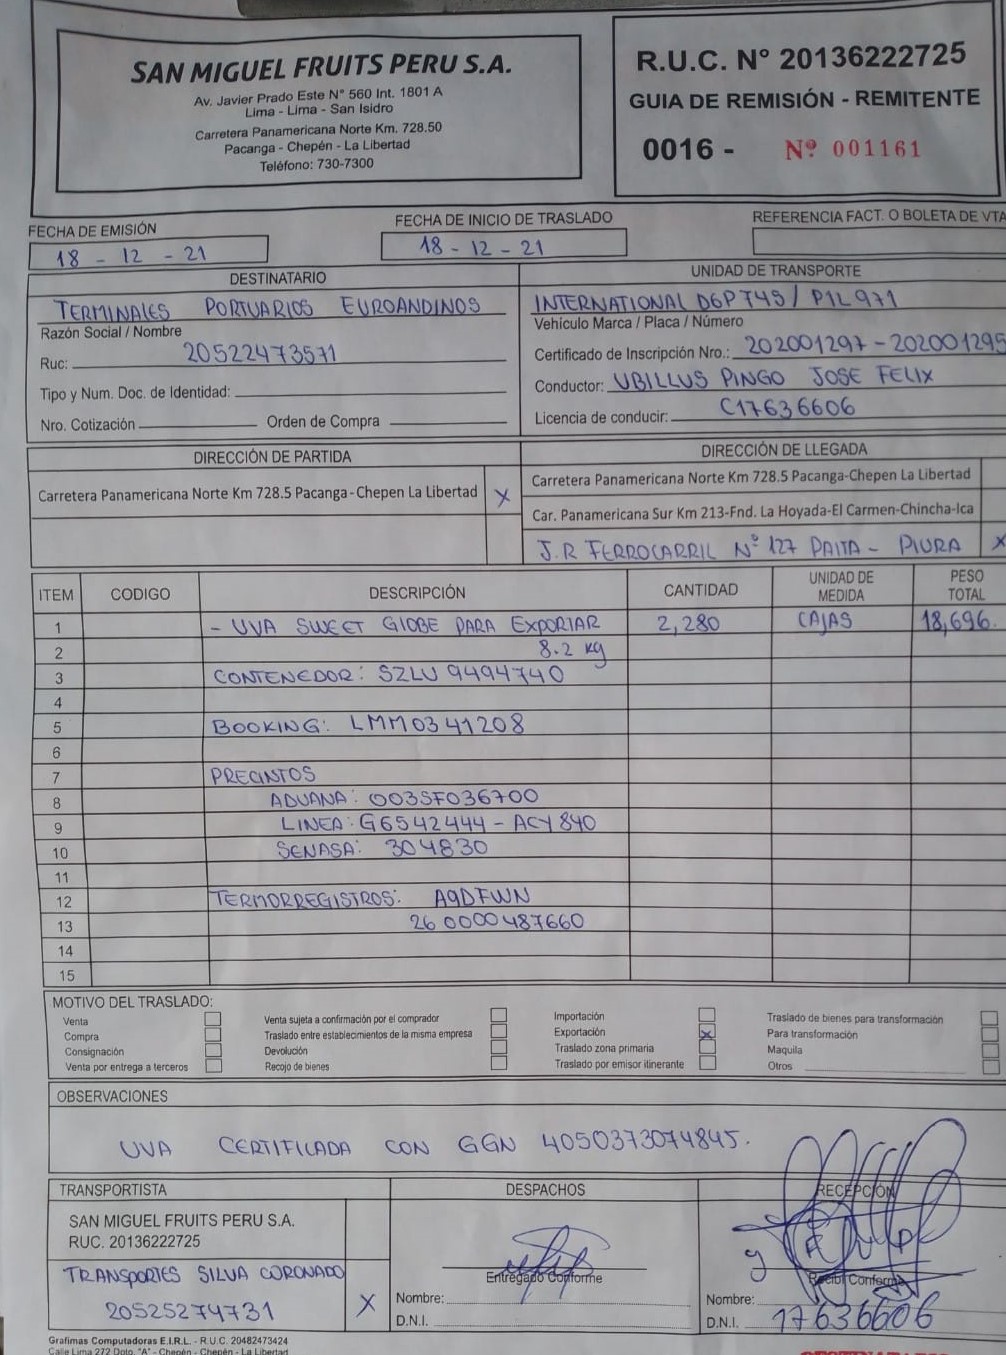 SAN MIGUEL FRUITS PERU S.A.
Av. Javier Prado Este N° 560 Int. 1801 A
Lima - Lima - San Isidro
Carretera Panamericana Norte Km. 728.50
Pacanga - Chepén - La Libertad
Teléfono: 730-7300
R.U.C. N° 20136222725
GUIA DE REMISIÓN - REMITENTE
0016 - Nº 001161
FECHA DE EMISIÓN
18 - 12 - 21
FECHA DE INICIO DE TRASLADO
18 - 12 - 21
REFERENCIA FACT. O BOLETA DE VTA
DESTINATARIO
TERMINALES PORTUARIOS EUROANDINOS
Razón Social / Nombre
Ruc: 20522473571
Tipo y Num. Doc. de Identidad:
Nro. Cotización Orden de Compra
UNIDAD DE TRANSPORTE
INTERNATIONAL D6P745 / P1L971
Vehículo Marca / Placa / Número
Certificado de Inscripción Nro.: 202001297 - 202001295
Conductor: UBILLUS PINGO JOSE FELIX
Licencia de conducir: C17636606
DIRECCIÓN DE PARTIDA
Carretera Panamericana Norte Km 728.5 Pacanga-Chepen La Libertad X
DIRECCIÓN DE LLEGADA
Carretera Panamericana Norte Km 728.5 Pacanga-Chepen La Libertad
Car. Panamericana Sur Km 213-Fnd. La Hoyada-El Carmen-Chincha-Ica
J.R FERROCARRIL Nº 127 PAITA - PIURA X
ITEM CODIGO DESCRIPCIÓN CANTIDAD UNIDAD DE MEDIDA PESO TOTAL
1 - UVA SWEET GLOBE PARA EXPORTAR 2,280 CAJAS 18,696.
2 8.2 kg
3 CONTENEDOR: SZLU 9494740
4
5 BOOKING: LMM0341208
6
7 PRECINTOS
8 ADUANA: 003SF036700
9 LINEA: G6542444 - ACY 840
10 SENASA: 304830
11
12 TERMORREGISTROS: A9DFWN
13 26 0000487660
14
15
MOTIVO DEL TRASLADO:
Venta
Compra
Consignación
Venta por entrega a terceros
Venta sujeta a confirmación por el comprador
Traslado entre establecimientos de la misma empresa
Devolución
Recojo de bienes
Importación
Exportación X
Traslado zona primaria
Traslado por emisor itinerante
Traslado de bienes para transformación
Para transformación
Maquila
Otros
OBSERVACIONES
UVA CERTIFICADA CON GGN 4050373074845.
TRANSPORTISTA
SAN MIGUEL FRUITS PERU S.A.
RUC. 20136222725
TRANSPORTES SILVA CORONADO
20525274731 X
DESPACHOS
Entregado Conforme
Nombre:
D.N.I.
RECEPCIÓN
Recibí Conforme
Nombre:
D.N.I. 17636606
Grafimas Computadoras E.I.R.L. - R.U.C. 20482473424
Calle Lima 272 Dpto. "A" - Chepén - Chepén - La Libertad